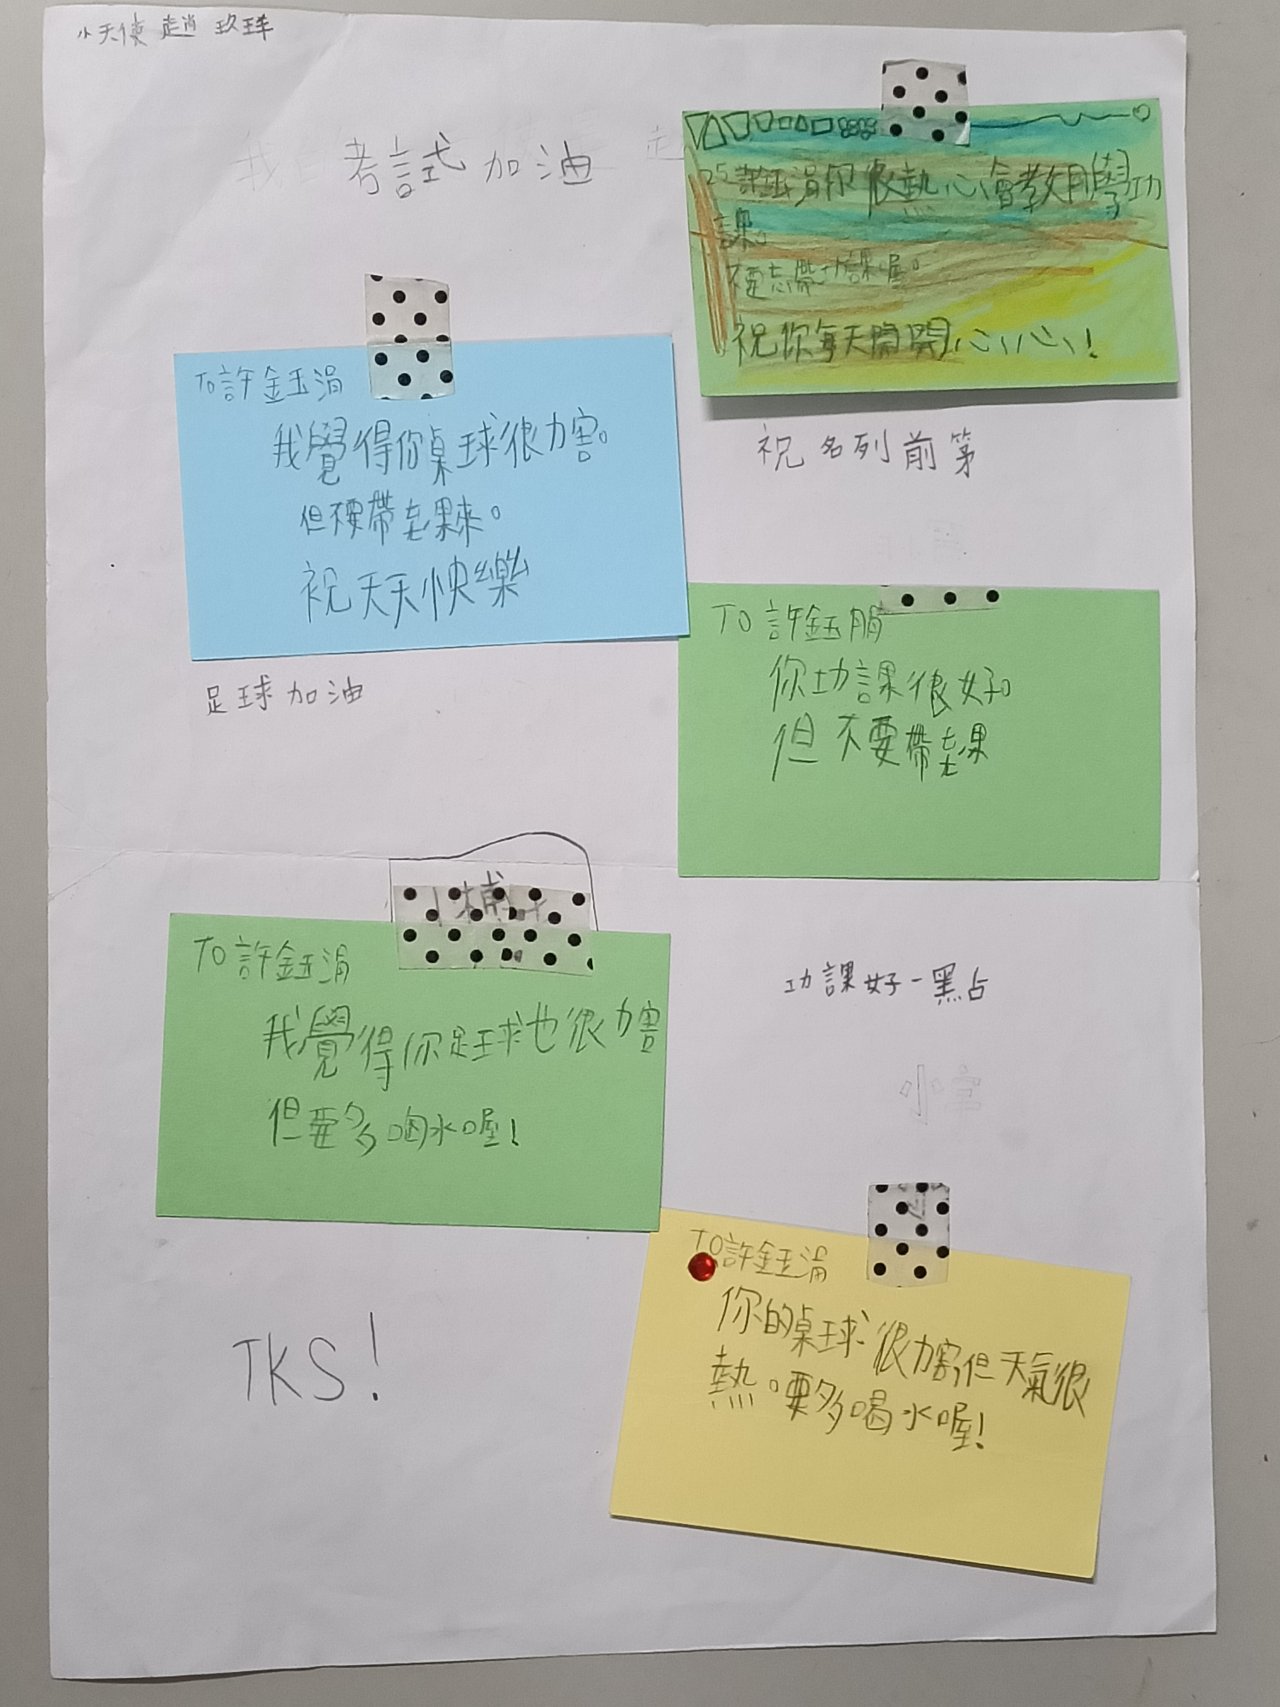 小天使 趙 玟琇
考試加油
25許鈺涓你很熱心會教同學功
課。
不要忘帶功課喔。
祝你每天開開心心!
To許鈺涓
我覺得你桌球很力害。
但不要帶走果來。
祝天天快樂
祝名列前第
足球加油
To許鈺涓
你功課很好。
但不要帶走果
To許鈺涓
我覺得你足球也很力害
但要多喝水喔!
功課好一點
To許鈺涓
你的桌球很力害,但天氣很
熱。要多喝水喔!
TKS!